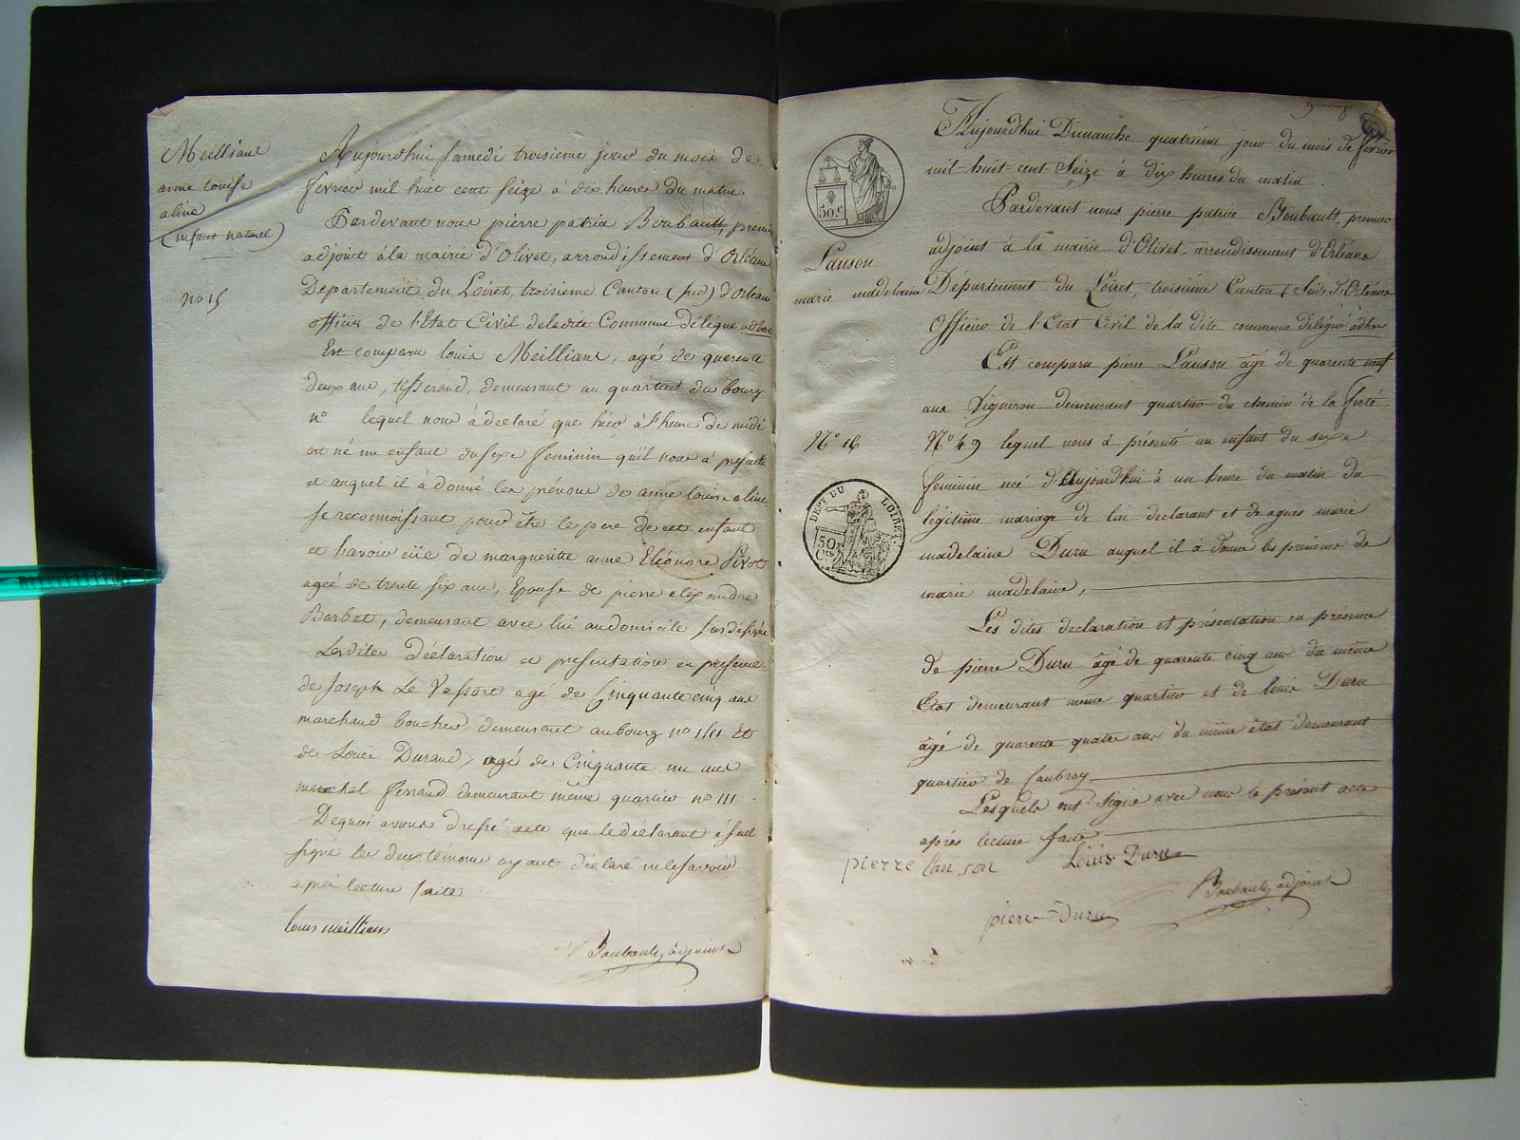 Meilliane
anne louise
aline
(enfant naturel)
N° 15
Aujourdhui samedi troisieme jour du mois de
fevrier mil huit cent seize à dix heures du matin
Pardevant nous pierre patrice Boubault, premier
adjoint à la mairie d'Olivet, arrondissement d'Orléans
Departement du Loiret, troisieme Canton (sud) d'Orleans
officier de l'Etat Civil de ladite Commune délégué adhoc
Est comparu louis Meilliane, agé de quarente
deux ans, tisserand, demeurant au quartier du bourg
n° lequel nous à declaré que hier à l'heure de midi
est né un enfant du sexe feminin qu'il nous à presenté
et auquel il à donné les prénoms de anne louise aline
se reconnoissant pour être le pere de cet enfant
et l'avoir eue de margueritte anne Eléonore
agée de trente six ans, Epouse de pierre alexandre
Barbet, demeurant avec lui au domicile susdésigné
Lesdites déclaration et presentation en presence
de Joseph Le Vassort agé de Cinquante cinq ans
marchand boucher demeurant au bourg n° 141 Et
de Louis Durand, agé de Cinquante un ans
marechal ferrand demeurant même quartier n° 111
Dequoi avons dressé acte que le déclarant à seul
signé les deux témoins ayant déclaré ne le savoir
après lecture faite
louis meilliane
Boubault, adjoint
Aujourdhui Dimanche quatrieme jour du mois de fevrier
mil huit cent Seize à dix heures du matin
Pardevant nous pierre patrice Boubault, premier
adjoint à la mairie d'Olivet, arrondissement d'Orléans
50 c
Lanson
marie madelaine
Département du Loiret, troisième Canton (Sud) d'Orléans
Officier de l'Etat Civil de la dite commune délégué adhoc
Est comparu pierre Lanson âgé de quarente neuf
ans Vigneron demeurant quartier du chemin de la ferté
N° 16
N° 49 lequel nous à présenté un enfant du sexe
feminin né d'Aujourdhui à un heure du matin du
DEPT DU LOIRET
50 Cts
légitime mariage de lui declarant et de agnes marie
madelaine Duru auquel il à donné les prénoms de
marie madelaine,
Les dites declaration et présentation en présence
de pierre Duru âgé de quarente cinq ans du même
Etat demeurant même quartier et de louis Duru
âgé de quarente quatre ans du même état demeurant
quartier de Caubray
Lesquels ont signé avec nous le présent acte
après lecture faite
pierre lanson
Louis Duru
Boubault, adjoint
piere Duru